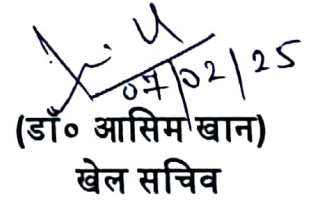 07/02/25
(डॉ० आसिम खान)
खेल सचिव